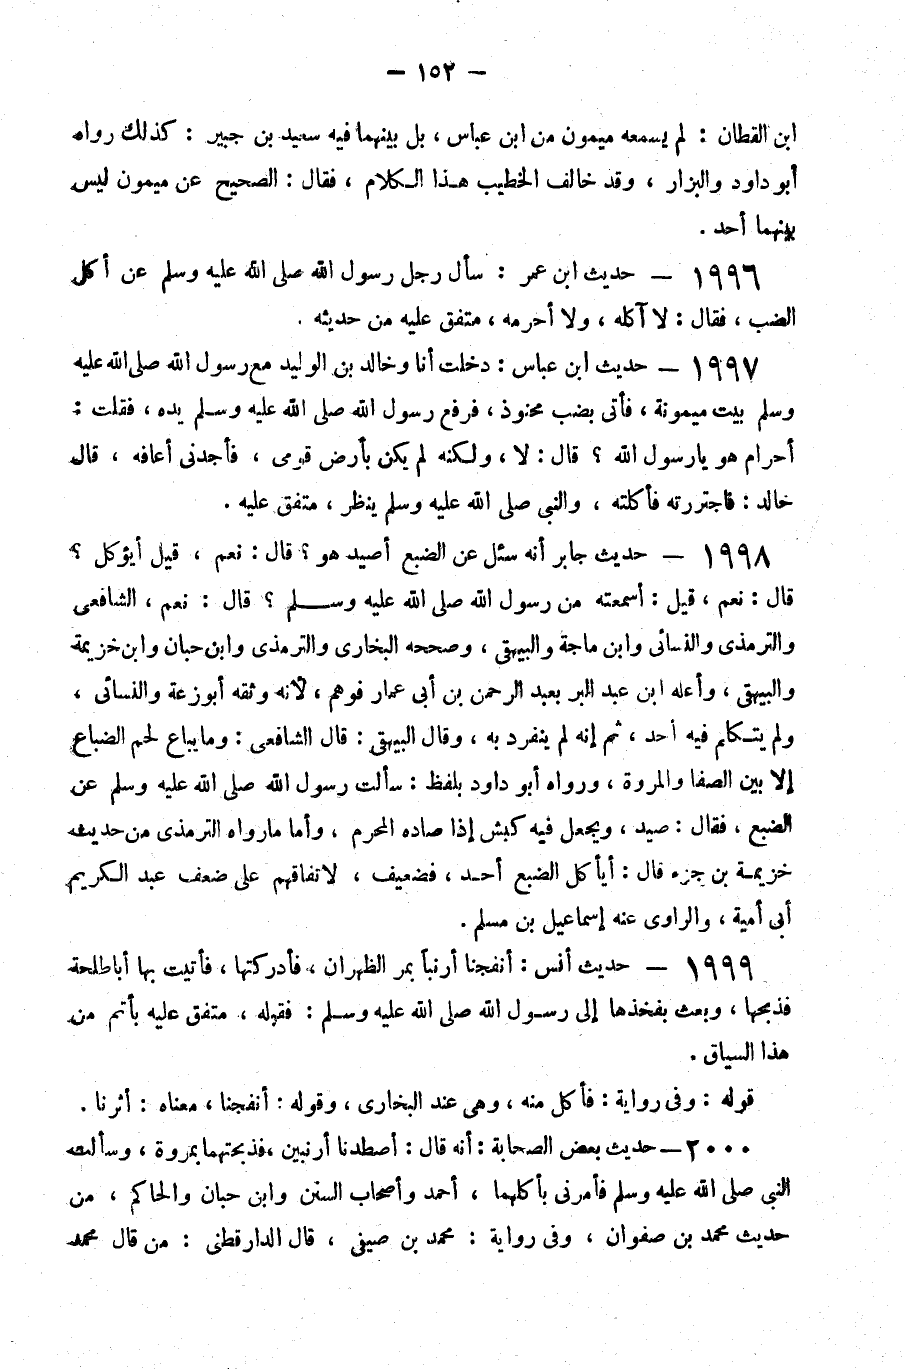 — ١٥٢ —
ابن القطان : لم يسمعه ميمون من ابن عباس ، بل بينهما فيه سعيد بن جبير : كذلك رواه
أبو داود والبزار ، وقد خالف الخطيب هذا الكلام ، فقال : الصحيح عن ميمون ليس
بينهما أحد .
١٩٩٦ — حديث ابن عمر : سأل رجل رسول الله صلى الله عليه وسلم عن أكل
الضب ، فقال : لا آكله ، ولا أحرمه ، متفق عليه من حديثه .
١٩٩٧ — حديث ابن عباس : دخلت أنا وخالد بن الوليد مع رسول الله صلى الله عليه
وسلم بيت ميمونة ، فأتى بضب محنوذ ، فرفع رسول الله صلى الله عليه وسلم يده ، فقلت :
أحرام هو يارسول الله ؟ قال : لا ، ولكنه لم يكن بأرض قومى ، فأجدنى أعافه ، قال
خالد : فاجتررته فأكلته ، والنبي صلى الله عليه وسلم ينظر ، متفق عليه .
١٩٩٨ — حديث جابر أنه سئل عن الضبع أصيد هو ؟ قال : نعم ، قيل أيؤكل ؟
قال : نعم ، قيل : أسمعته من رسول الله صلى الله عليه وسلم ؟ قال : نعم ، الشافعى
والترمذى والنسائى وابن ماجة والبيهقى ، وصححه البخارى والترمذى وابن حبان وابن خزيمة
والبيهقى ، وأعله ابن عبد البر بعبد الرحمن بن أبى عمار فوهم ، لأنه وثقه أبو زعة والنسائى ،
ولم يتكلم فيه أحد ، ثم إنه لم ينفرد به ، وقال البيهقى : قال الشافعى : وما يباع لحم الضباع
إلا بين الصفا والمروة ، ورواه أبو داود بلفظ : سألت رسول الله صلى الله عليه وسلم عن
الضبع ، فقال : صيد ، ويجعل فيه كبش إذا صاده المحرم ، وأما مارواه الترمذى من حديث
خزيمة بن جزء قال : أيأكل الضبع أحد ، فضعيف ، لاتفاقهم على ضعف عبد الكريم
أبى أمية ، والراوى عنه إسماعيل بن مسلم .
١٩٩٩ — حديث أنس : أنفجنا أرنباً بمر الظهران ، فأدركتها ، فأتيت بها أباطلحة
فذبحها ، وبعث بفخذها إلى رسول الله صلى الله عليه وسلم : فقبله ، متفق عليه بأتم من
هذا السياق .
قوله : وفى رواية : فأكل منه ، وهى عند البخارى ، وقوله : أنفجنا ، معناه : أثرنا .
٢٠٠٠ — حديث بعض الصحابة : أنه قال : أصطدنا أرنبين ، فذبحتهما بمروة ، وسألت
النبي صلى الله عليه وسلم فأمرنى بأكلهما ، أحمد وأصحاب السنن وابن حبان والحاكم ، من
حديث محمد بن صفوان ، وفى رواية : محمد بن صيفى ، قال الدارقطنى : من قال محمد